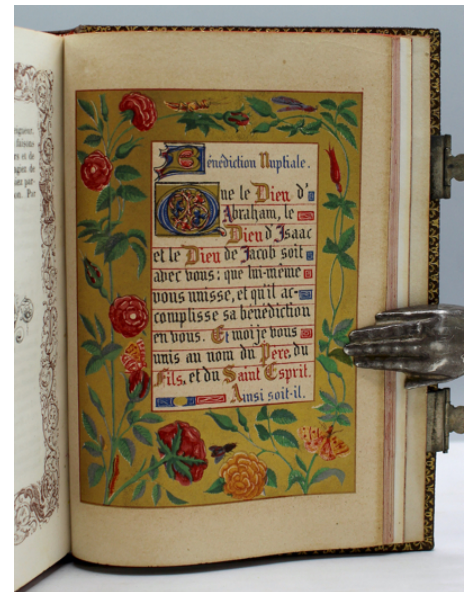 Bénédiction Nuptiale.
Que le Dieu d'
Abraham, le
Dieu d'Isaac
et le Dieu de Jacob soit
avec vous: que lui-même
vous unisse, et qu'il ac-
complisse sa bénédiction
en vous. Et moi je vous
unis au nom du Père, du
Fils, et du Saint Esprit.
Ainsi soit-il.